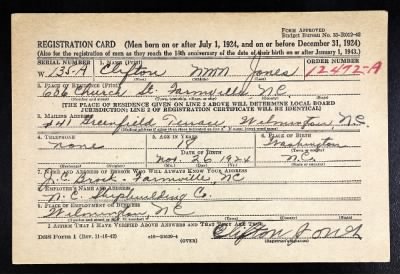 FORM APPROVED
Budget Bureau No. 33-R012-42
REGISTRATION CARD (Men born on or after July 1, 1924, and on or before December 31, 1924)
(Also for the registration of men as they reach the 18th anniversary of the date of their birth on or after January 1, 1943.)
SERIAL NUMBER 1. NAME (Print) ORDER NUMBER
W. 135-A Clifton NMN Jones 12472-A
2. PLACE OF RESIDENCE (Print)
606 Church St. Farmville N.C.
(Number and street) (Town, township, village, or city) (County) (State)
[THE PLACE OF RESIDENCE GIVEN ON LINE 2 ABOVE WILL DETERMINE LOCAL BOARD
JURISDICTION; LINE 2 OF REGISTRATION CERTIFICATE WILL BE IDENTICAL]
3. MAILING ADDRESS
241 Greenfield Terrace, Wilmington, N.C.
4. TELEPHONE 5. AGE IN YEARS 6. PLACE OF BIRTH
none 18 Washington
DATE OF BIRTH
Nov. 26 1924 N.C.
7. NAME AND ADDRESS OF PERSON WHO WILL ALWAYS KNOW YOUR ADDRESS
J.C. Farmville, NC
8. EMPLOYER'S NAME AND ADDRESS
N.C. Shipbuilding Co.
9. PLACE OF EMPLOYMENT OR BUSINESS
Wilmington NC
I AFFIRM THAT I HAVE VERIFIED ABOVE ANSWERS AND THAT THEY ARE TRUE.
DSS Form 1 (Rev. 11-16-42) (OVER) Clifton Jones